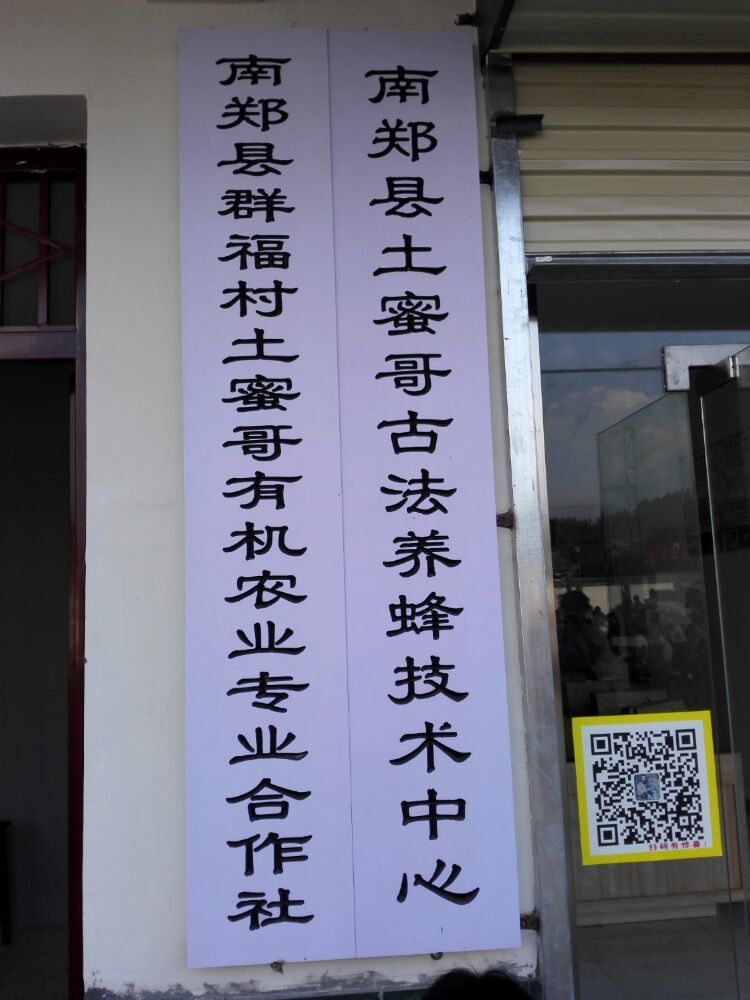 南郑县群福村土蜜哥有机农业专业合作社
南郑县土蜜哥古法养蜂技术中心
扫码有惊喜！